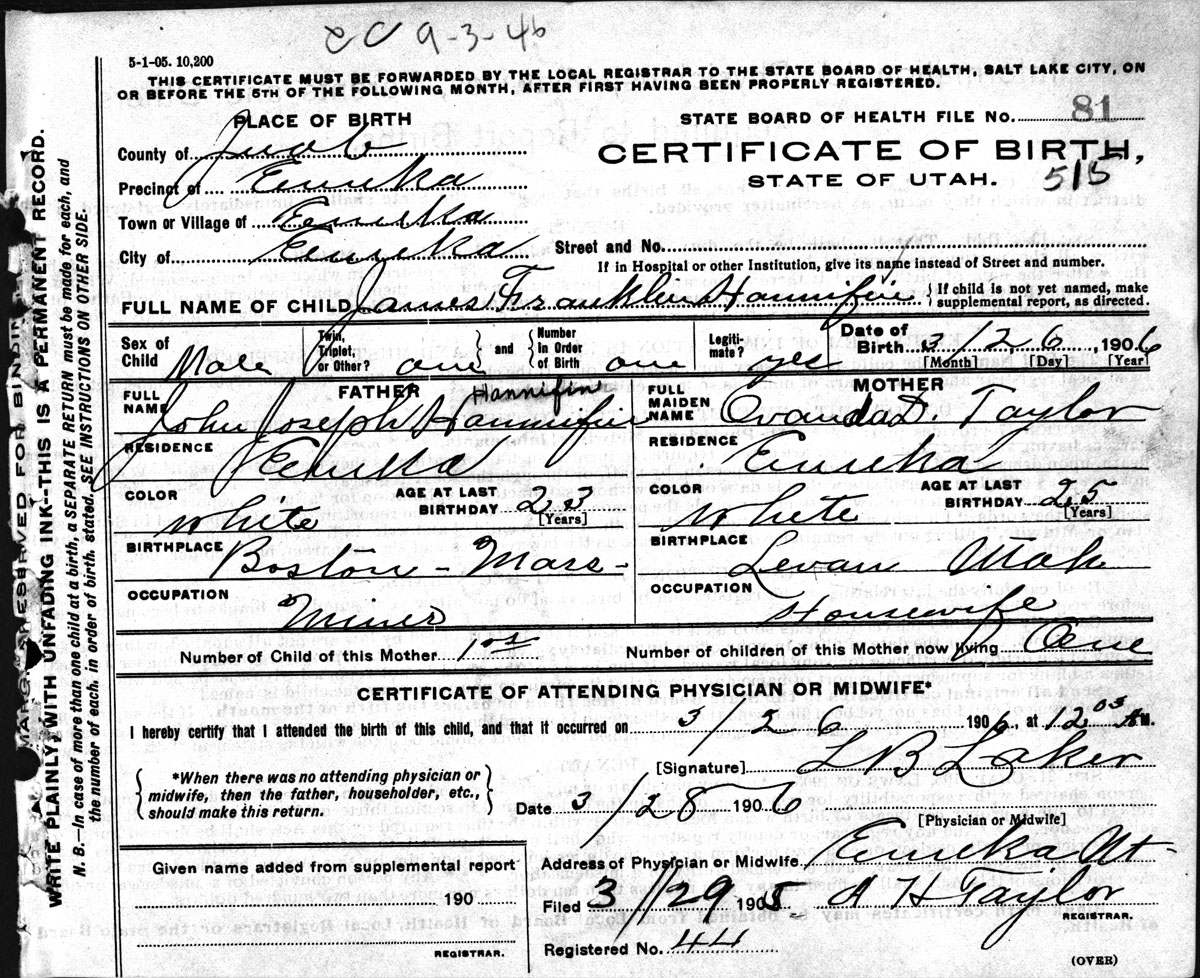 9-3-46
5-1-05. 10,200
THIS CERTIFICATE MUST BE FORWARDED BY THE LOCAL REGISTRAR TO THE STATE BOARD OF HEALTH, SALT LAKE CITY, ON
OR BEFORE THE 5TH OF THE FOLLOWING MONTH, AFTER FIRST HAVING BEEN PROPERLY REGISTERED.
PLACE OF BIRTH
STATE BOARD OF HEALTH FILE No. 81
County of Juab
CERTIFICATE OF BIRTH,
STATE OF UTAH. 515
Precinct of Eureka
Town or Village of Eureka
City of Eureka
Street and No.
If in Hospital or other Institution, give its name instead of Street and number.
FULL NAME OF CHILD James Franklin Hannifin {If child is not yet named, make supplemental report, as directed.
Sex of Child Male Twin, Triplet, or Other? one } and { Number in Order of Birth one Legiti-mate? yes Date of Birth 3/26, 1906
[Month] [Day] [Year]
FATHER
MOTHER
FULL NAME John Joseph Hannifin Hannifin
FULL MAIDEN NAME Ovanda D. Taylor
RESIDENCE Eureka
RESIDENCE Eureka
COLOR White AGE AT LAST BIRTHDAY 23 [Years]
COLOR White AGE AT LAST BIRTHDAY 25 [Years]
BIRTHPLACE Boston - Mass-
BIRTHPLACE Levan Utah
OCCUPATION Miner
OCCUPATION Housewife
Number of Child of this Mother 1st
Number of children of this Mother now living One
CERTIFICATE OF ATTENDING PHYSICIAN OR MIDWIFE*
I hereby certify that I attended the birth of this child, and that it occurred on 3/26 1906, at 12 03 AM.
{*When there was no attending physician or midwife, then the father, householder, etc., should make this return.}
[Signature] L B Laker
Date 3/28 1906
[Physician or Midwife]
Given name added from supplemental report
190
REGISTRAR.
Address of Physician or Midwife Eureka Ut-
Filed 3/29 1905 A H Taylor
REGISTRAR.
Registered No. 44
(OVER)
MARGIN RESERVED FOR BINDING
WRITE PLAINLY, WITH UNFADING INK-THIS IS A PERMANENT RECORD.
N. B.—In case of more than one child at a birth, a SEPARATE RETURN must be made for each, and
the number of each, in order of birth, stated. SEE INSTRUCTIONS ON OTHER SIDE.